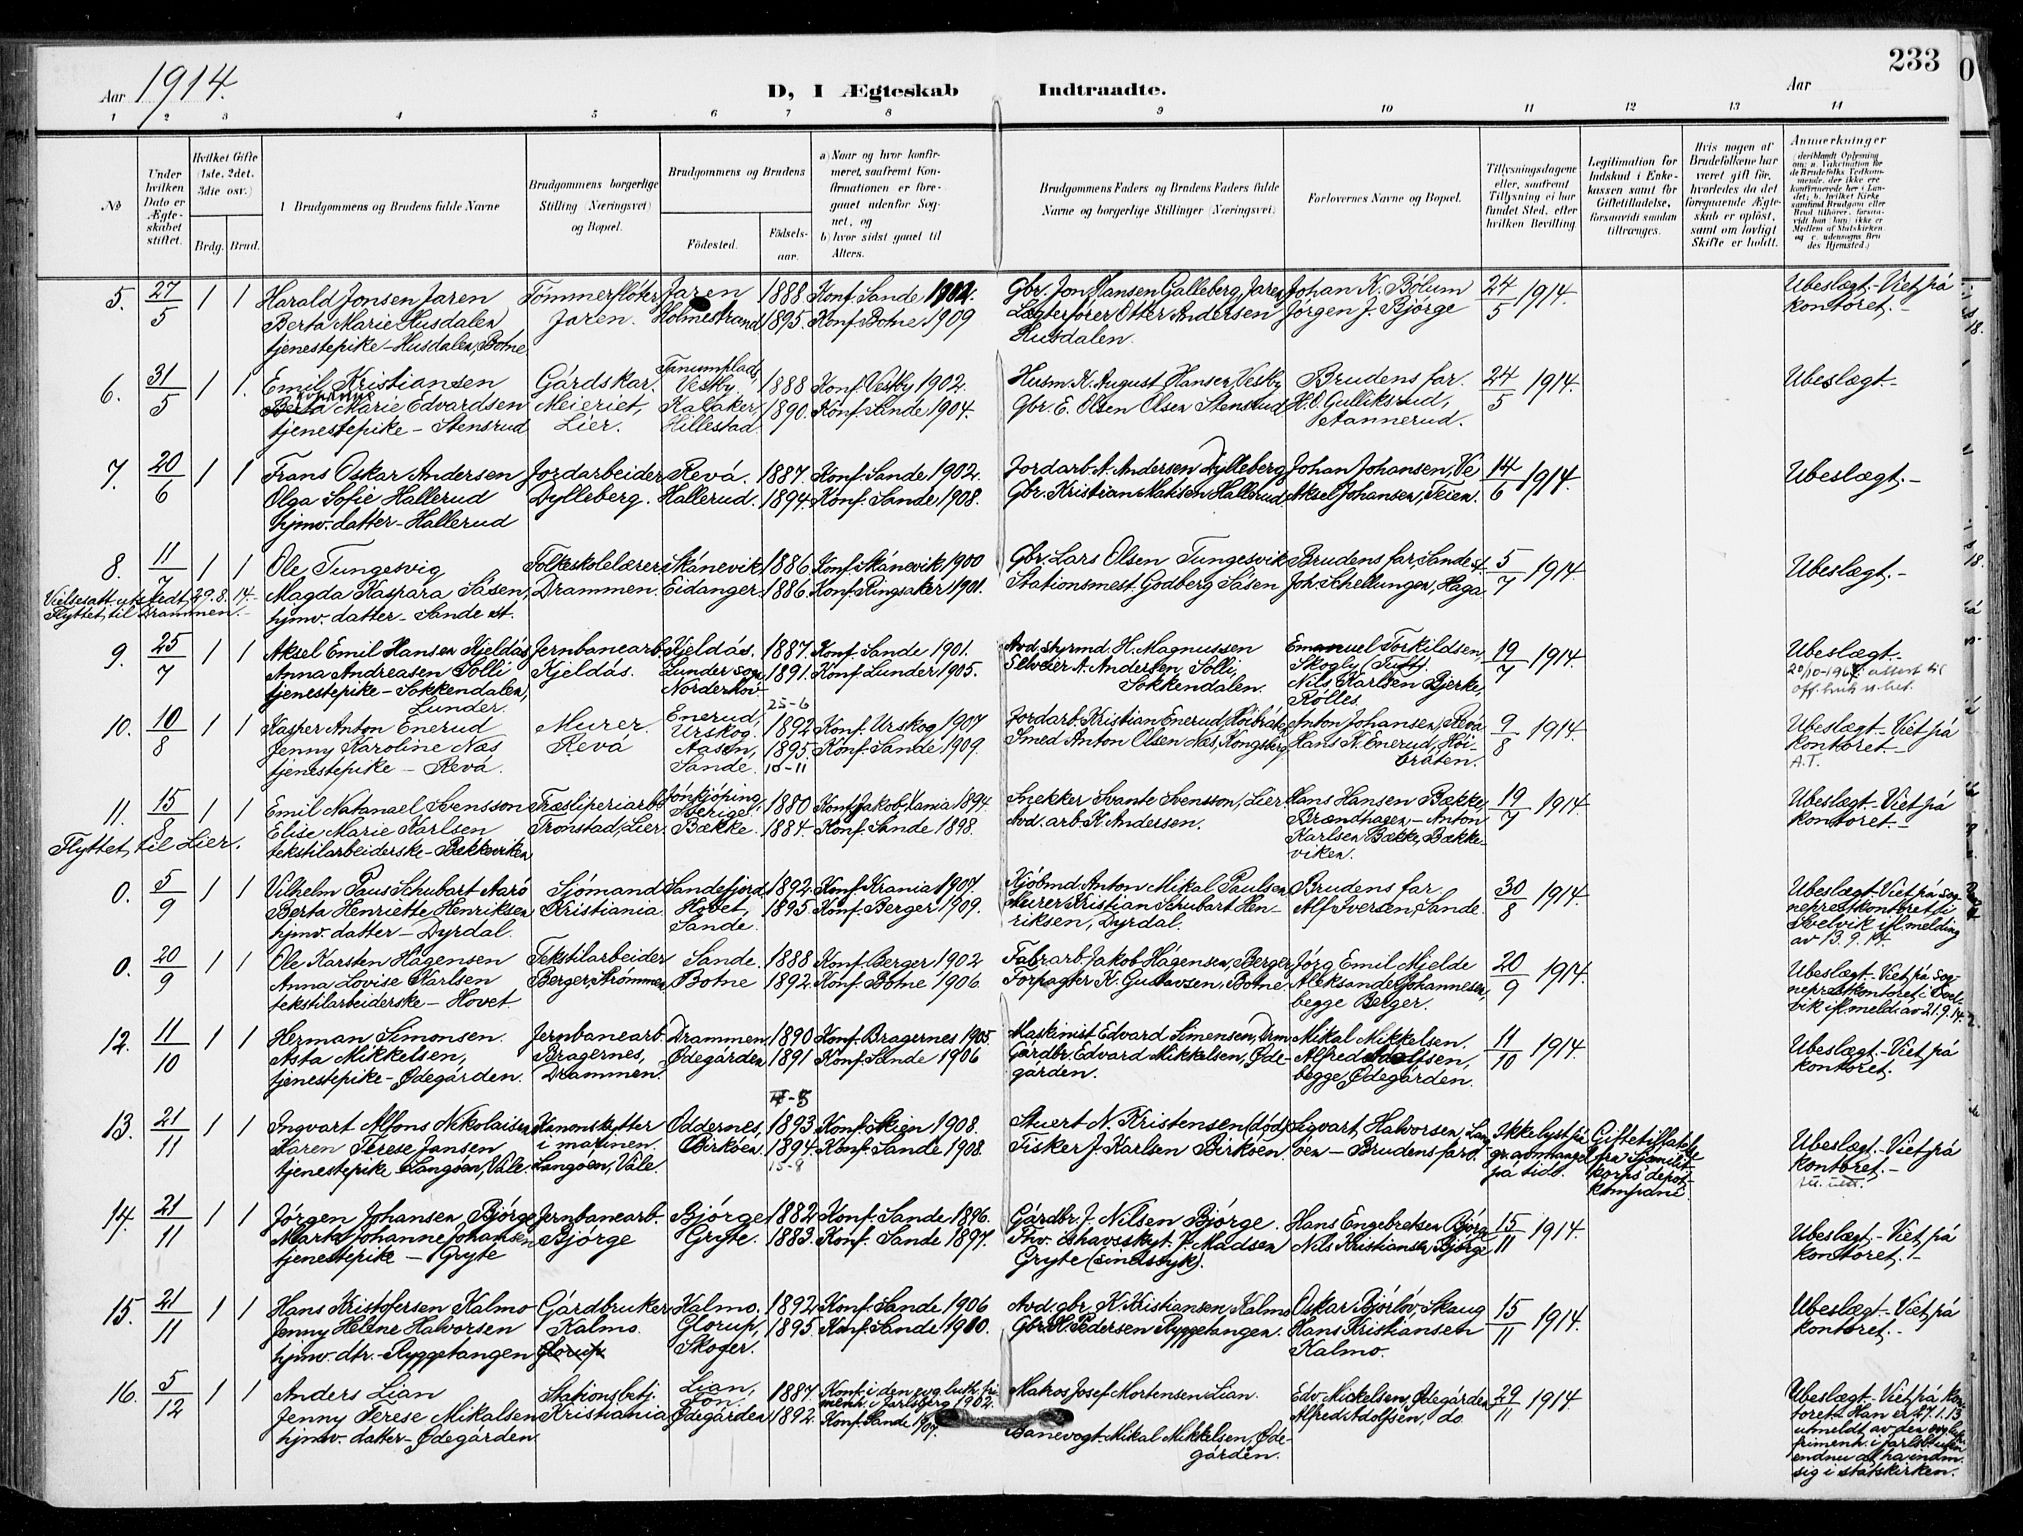 233
Aar 1914.
D, I Ægteskab Indtraadte.
Aar
1 2 3 4 5 6 7 8 9 10 11 12 13 14
No
Under hvilken Dato er Ægteskabet stiftet.
Hvilket Gifte (1ste, 2det, 3die osv.)
Brdg. Brud.
Brudgommens og Brudens fulde Navne
Brudgommens borgerlige Stilling (Næringsvei) og Bopæl.
Brudgommens og Brudens
Födested. Födselsaar.
a) Naar og hvor konfirmeret, saafremt Konfirmationen er foregaaet udenfor Sognet, og
b) hvor sidst gaaet til Alters.
Brudgommens Faders og Brudens Faders fulde Navne og borgerlige Stillinger (Næringsvei)
Forlovernes Navne og Bopæl.
Tillysningsdagene eller, saafremt Tillysning ei har fundet Sted, efter hvilken Bevilling
Legitimation for Indskud i Enkekassen samt for Giftetilladelse, forsaavidt saadan tiltrænges.
Hvis nogen af Brudefolkene har været gift för, hvorledes da det foregaaende Ægteskab er oplöst, samt om lovligt Skifte er holdt.
Anmærkninger
5. 27/5 1 1 Harald Jonsen Jaren Tömmerflöter Jaren 1888 Konf. Sande 1902. Gbr. Jon Hansen Galleberg, Jaren Johan K. Bölum 24/5 1914. Ubeslægt.- Viet på
Berta Marie Husdalen Jaren. Holmestrand 1895. Konf. Botne 1909 Lægterforer Otter Andersen Jörgen J. Björge kontoret.-
tjenestepike - Husdalen, Botne Husdalen.
6. 31/5 1 1. Emil Kristiansen Gårdskar, Tanumplads, Vestby, 1888 Konf. Vestby 1902. Husm. K. August Hansen, Vestby Brudens far. 24/5 1914. Ubeslægt.-
Berta Marie Edvardsen Meieriet, 1890. Konf. Sande 1904. Gbr. E. Olsen Olsen Stensrud H. O. Gulliksrud,
tjenestepike - Stensrud Lier. Hillestad.
7. 20/6 1 1 Frans Oskar Andersen Jordarbeider Revå. 1887. Konf. Sande 1902. Jordarb. A. Andersen Dylleberg Johan Johansen, Ve 14/6 1914. Ubeslægt.-
Olga Sofie Hallerud Dylleberg. Hallerud. 1894. Konf. Sande 1908. Gbr. Kristian Hallerud Aksel Johansen, Teien.
hjmv. datter - Hallerud
8. 11/7 1 1 Ole Tungesvig Folkeskolelærer Skånevik 1886 Konf. Skånevik 1900 Gbr. Lars Olsen Tungesvik Brudens far, Sande st. 5/7 1914. Ubeslægt.-
Vielsesatt. utstedt 29.8.14. Magda Kaspara Såsen, Drammen. Eidanger. 1886. Konf. Ringsaker 1901. Stationsmest. Godberg Såsen Joh. Schellungen, Haga
Flyttet til Drammen.- hjmv. datter - Sande st.
9. 25/7 1 1 Aksel Emil Hansen Kjeldås Jernbanearb. Kjeldås. 1887. Konf. Sande 1901. Avd. styrmd. H. Magnussen Emanuel Torkildsen, 19/7 1914. Ubeslægt.-
Anna Andreasen Solli Kjeldås. Lunder sogn 1891. Konf. Lunder 1905. Selveier A. Andersen Solli, Skogly (Tuft).
tjenestepike - Sokkendalen, Norderhov Sokkendalen. Nils Karlsen Bjerke,
Lunder. Rölles.
10. 10/8 1 1 Kasper Anton Enerud Murer Enerud, Urskog. 25-6 1892 Konf. Urskog 1907 Jordarb. Kristian Enerud, Höibråten Anton Johansen, Revå 9/8 1914. Ubeslægt.- Viet på
Jenny Karoline Næs Revå Aasen, 1895. Konf. Sande 1909. Smed Anton Olsen Næs, Kongsberg Hans K. Enerud, Höi- kontoret.-
tjenestepike - Revå. Sande. 10-11 bråten. A.T.
11. 15/8 1 1 Emil Natanael Svensson Træsliperiarb. Jönkjöping, Sverige 1880 Konf. Jakob, Krania 1894. Snekker Svante Svensson, Lier Hans Hansen Bække, 19/7 1914. Ubeslægt.- Viet på
Elise Marie Karlsen Tronstad, Lier. Bække. 1884 Konf. Sande 1898. Avd. arb. K. Andersen. Brændhagen - Anton kontoret.-
Flyttet til Lier. tekstilarbeiderske - Bækkeviken Karlsen Bække, Bække-
viken.
0. 5/9 1 1 Vilhelm Paus Schubart Aarö Sjömand Sandefjord 1892. Konf. Krania 1907. Kjöbmd. Anton Mikal Paulsen Brudens far. 30/8 1914. Ubeslægt.- Viet på sog-
Berta Henriette Henriksen Kristiania. Hovet, 1895. Konf. Berger 1909. Murer Kristian Schubart Hen- Alf Iversen, Sande. neprestkontoret i
hjmv. datter - Dyrdal. Sande. riksen, Dyrdal. Svelvik ifl. melding
av 13.9.14.
0. 20/9 1 1 Ole Karsten Hågensen Tekstilarbeider Sande. 1888 Konf. Berger 1902 Fabr. arb. Jakob Hågensen, Berger Jörg. Emil Mjelde 20/9 1914. Ubeslægt.- Viet på sog-
Anna Lovise Karlsen Berger, Strömmen, Botne 1892. Konf. Botne 1906. Forpagter K. Gustavsen, Botne. Aleksander Johannesen, neprestkontoret i Svel-
tekstilarbeiderske - Hovet. begge Berger. vik ifl. meld. av 21.9.14.
12. 11/10 1 1 Herman Simonsen. Jernbanearb. Drammen, 1890 Konf. Bragernes 1905. Maskinist Edvard Simensen, Drm. Mikal Mikkelsen. 11/10 1914. Ubeslægt.- Viet på
Asta Mikkelsen, Bragernes, Ödegården 1891 Konf. Sande 1906 Gårdbr. Edvard Mikkelsen, Öde- Alfred Adolfsen, kontoret.
tjenestepike - Ödegården. Drammen. gården. begge Ödegården.
13. 21/11 1 1 Ingvart Alfons Nikolaisen Kanonskytter Oddernes, 1893 Konf. Skien 1908. Stuert N. Kristensen (död) Sigvart Halvorsen, Lang- Ikke lyst på Giftetilladelse Ubeslægt.- Viet på
Karen Terese Jansen i marinen Birköen 1894. Konf. Sande 1908. Fisker J. Karlsen Birköen. öen - Brudens far. gr. av mangel fra kontoret.-
tjenestepike - Langöen, Våle. Langöen, Våle. 15-8 på tid. korps depot-
kompani
14. 21/11 1 1 Jörgen Johansen Björge Jernbanearb. Björge 1882 Konf. Sande 1896. Gårdbr. J. Nilsen Björge. Hans Engebretsen Björge, 15/11 1914. Ubeslægt.- Viet på
Marta Johanne Johansen Björge Gryte. 1883. Konf. Sande 1897. Fhv. ishavsskyt. P. Madsen Nils Kristiansen Björge kontoret.-
tjenestepike - Gryte Gryte (sindssyk).
15. 21/11 1 1 Hans Kristofersen Kalmo Gårdbruker Kalmo. 1892 Konf. Sande 1906 Avd. gbr. K. Kristiansen, Kalmo Oskar Björlöv, Skaug 15/11 1914. Ubeslægt.- Viet på
Jenny Helene Halvorsen Kalmo. Glorup, 1895. Konf. Sande 1910. Gbr. H. Pedersen Ryggetangen. Hans Kristiansen kontoret.-
hjmv. dtr. - Ryggetangen Glorup Skoger. Kalmo.
16. 5/12 1 1 Anders Lian Stationsbetj. Lian, Jon. 1887. Konf. i den evg. luth. fri- Matros Josef Mortensen Lian. Edv. Mickelsen, Ödegården 29/11 1914. Ubeslægt.- Viet på kon-
menh. i Jarlsberg 1902. toret.- Han er 27.1.13
Jenny Terese Mikalsen Kristiania Ödegården 1892. Konf. Sande 1907. Banevogt Mikal Mikkelsen, Öde- Alfred Adolfsen, do. utmeldt av den evg. luth.
hjmv. datter - Ödegården. gården. frimenh. i Jarlsb. uten
endnu at ha indm.
sig i statskirken.